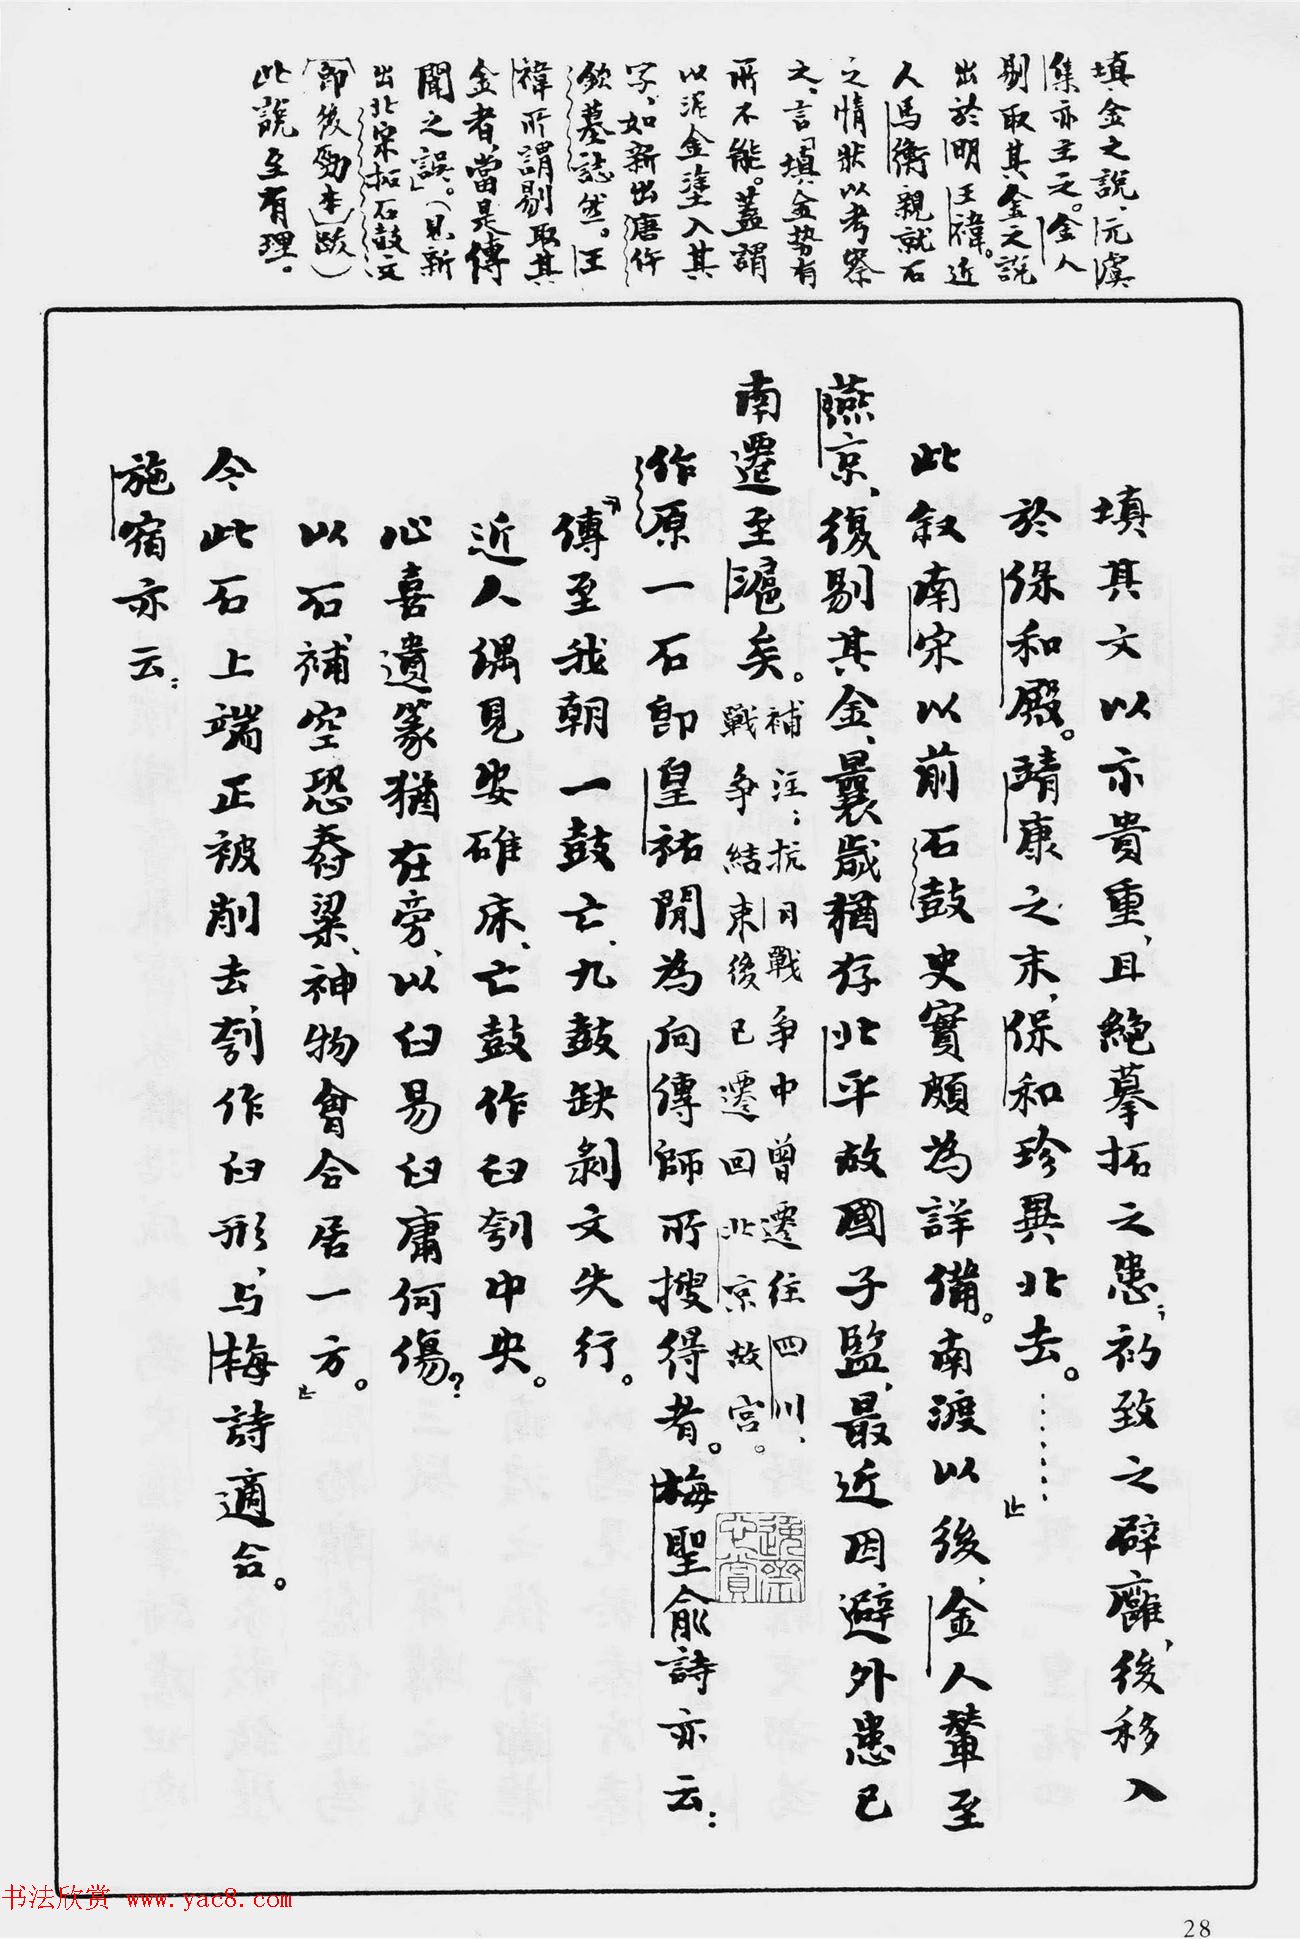 填金之說，元虞
集亦主之。金人
剔取其金之說
出於明王禕。近
人馬衡親就石
之情狀以考察
之，言「填金勢有
所不能。蓋謂
以泥金塗入其
字，如新出唐仵
欽墓誌然。王
禕所謂剔取其
金者，當是傳
聞之誤」。（見新
出北宋拓石鼓文
（即後勁本）跋）
此說至有理。
填其文以示貴重，且絕摹拓之患；初致之辟廱，後移入
於保和殿。靖康之末，保和珍異北去。……」
此叙南宋以前石鼓史實頗為詳備。南渡以後，金人輦至
燕京，復剔其金，曩歲猶存北平故國子監，最近因避外患已
南遷至滬矣。
補注：抗日戰争中曾遷往四川，
戰争結束後已遷回北京故宮。
作原一石即皇祐間為向傳師所搜得者。梅聖俞詩亦云：
「傳至我朝一鼓亡，九鼓缺剝文失行。
近人偶見安碓床，亡鼓作臼刳中央。
心喜遺篆猶在旁，以臼易臼庸何傷？
以石補空恐舂粱，神物會合居一方。」
今此石上端正被削去，刳作臼形，与梅詩適合。
施宿亦云：
書法欣赏 www.yac8.com
28